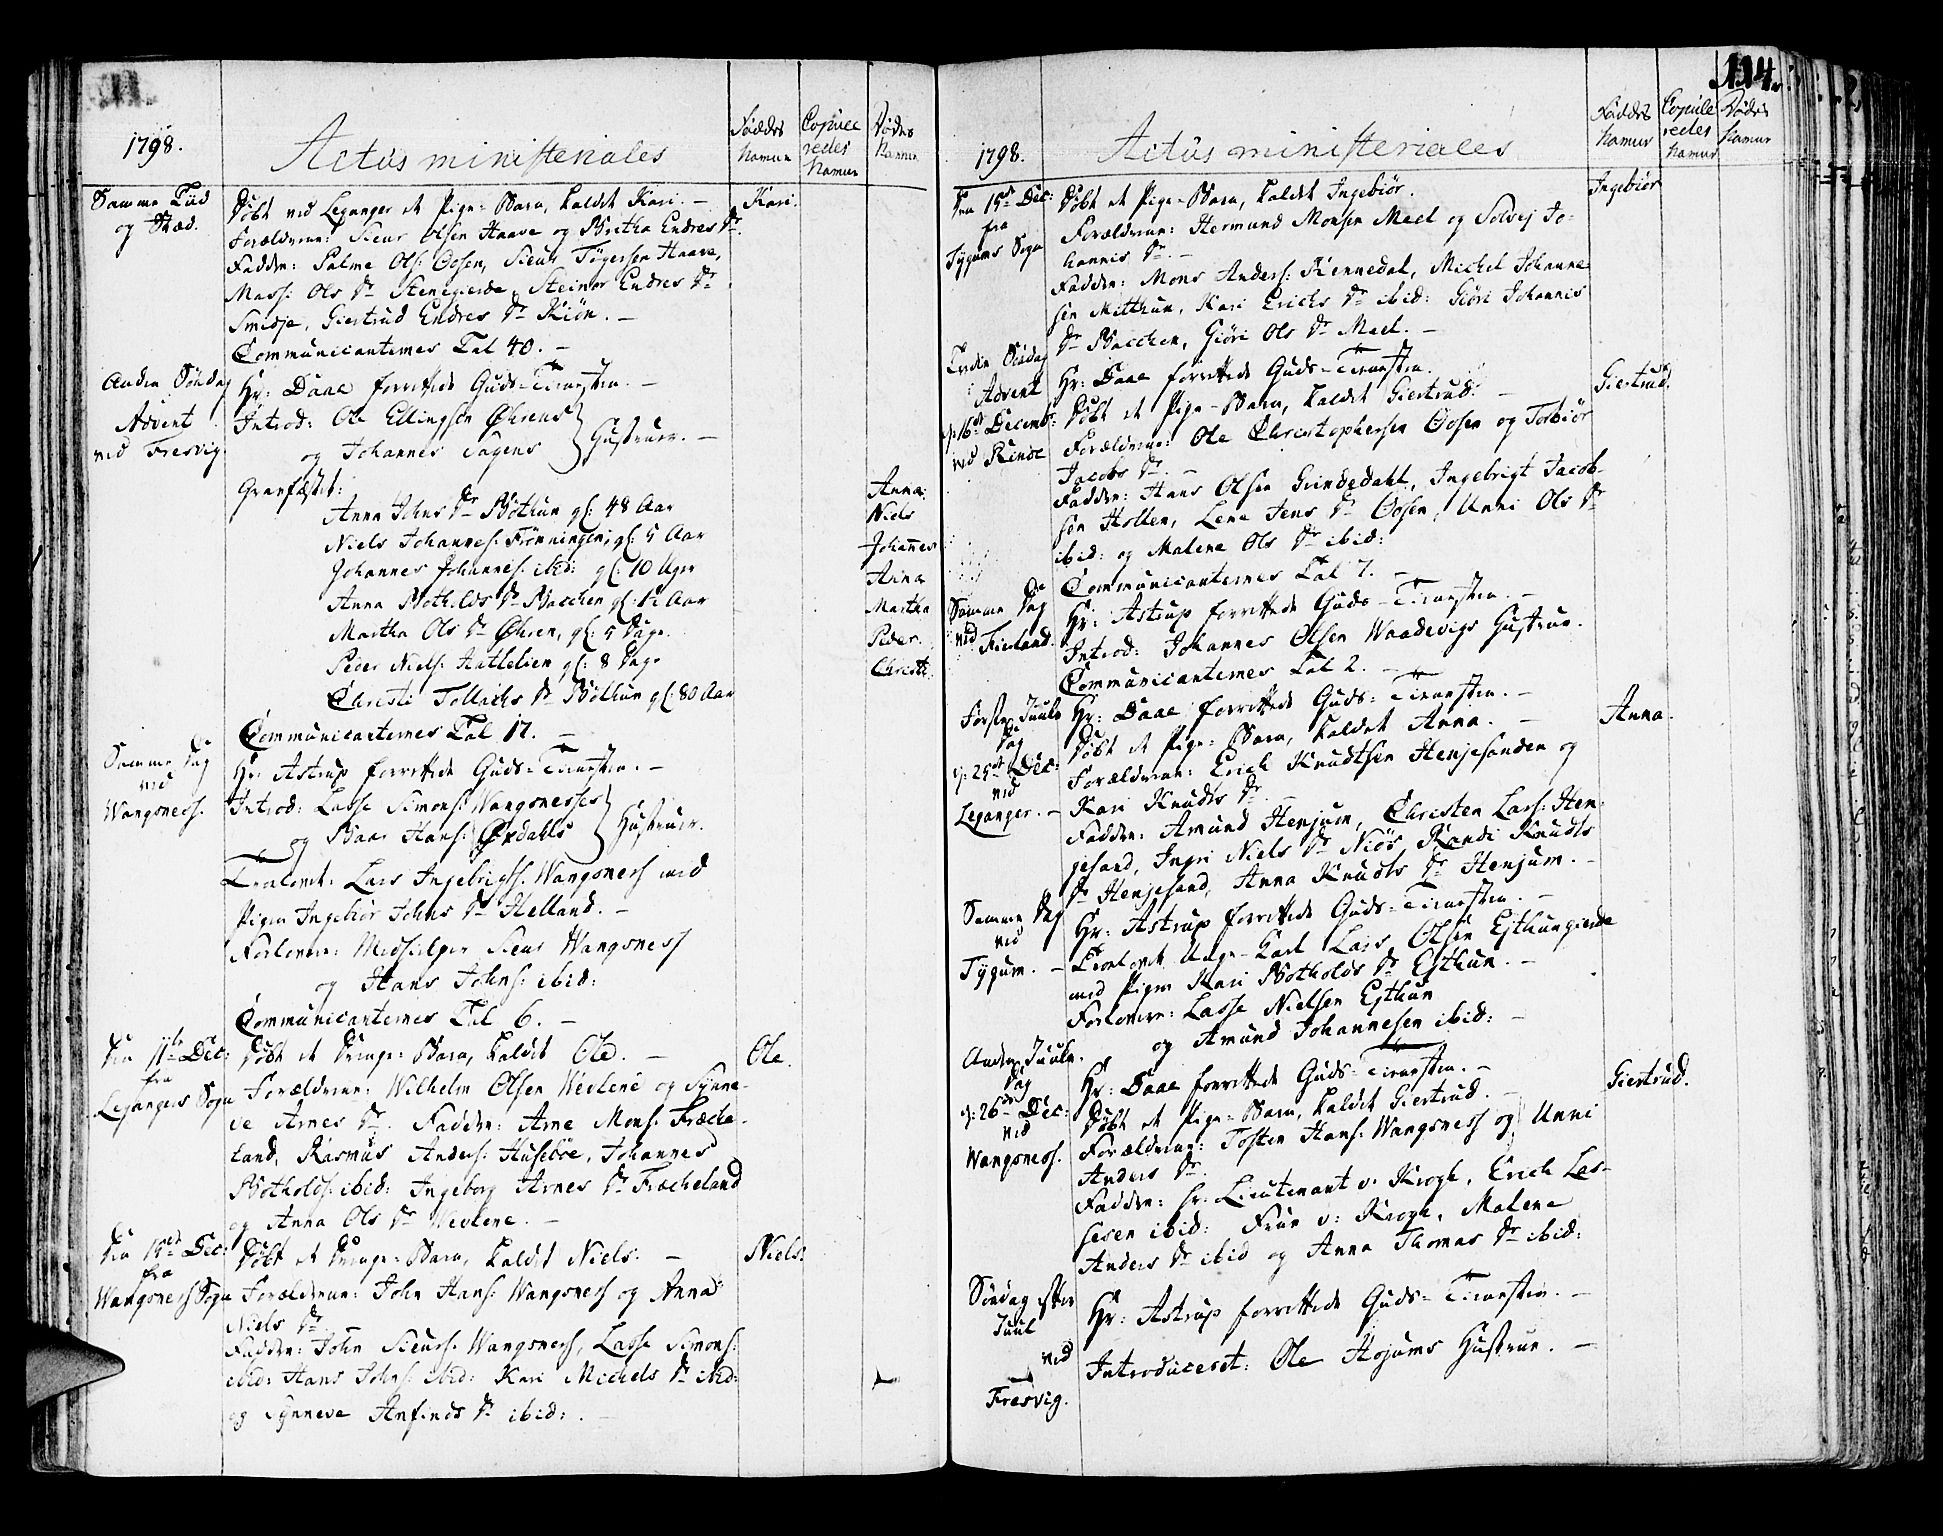 1798.
Actus ministeriales
Føddes Navne
Copuleredes Navne
Dødes Navne
Samme Tiid og Stæd.
Døbt ved Leganger et Pige-Barn, kaldet Kari. —
Kari.
Forældrene: Sieur Olsen Haave og Britha Endres Dr.
Faddere: Salme Ols: Oosen, Siur Tøgersen Haave,
Mass: Ols Dr Stenegierde, Steinor Endres Dr
Smidje, Giertrud Endres Dr Kiøn. —
Communicanternes Tal 40. —
Anden Søndag Advent ved Fresvig.
Hr: Daae forrettede Guds-Tienesten. —
Introd: Ole Ellingsen Øhrens
og Johannes Tagens } Hustruer. —
Gravfæstet:
Anna Johns Dr Bøthun gl: 48 Aar
Anna
Niels Johannes: Frønningen, gl: 5 Aar
Niels
Johannes Johannes: ibid: gl: 10 Uger
Johannes
Anna Bothilds Dr Bacchen gl: 12 Aar
Anna
Martha Ols Dr Øhren, gl: 5 Dage
Martha
Peder Niels: Hatlelien gl: 8 Dage
Peder
Christi Tollachs Dr Bøthun gl: 80 Aar
Christi
Communicanternes Tal 17. —
Samme Dag ved Wangsness.
Hr: Astrup forrettede Guds-Tienesten. —
Introd: Lasse Simons: Wangsnesses
og Baar Hans: Ørdahls } Hustruer.
Trolovet: Lars Ingebrigts: Wangsness med
Pigen Ingebiør Johns Dr Helland. —
Forlovere: Medhielper Sieur Wangsness
og Hans Johns: ibid:
Communicanternes Tal 6. —
Den 11te Dec: fra Legangers Sogn
Døbt et Drenge-Barn, kaldet Ole. —
Ole.
Forældrene: Wilhelm Olsen Wevlene og Synne-
ve Arnes Dr. Faddere: Arne Mons: Fræche-
land, Rasmus Anders: Husebøe, Johannes
Botholds: ibid: Ingeborg Arnes Dr Fræcheland
og Anna Ols Dr Wevlene. —
Den 15de Dec: fra Wangsness Sogn
Døbt et Drenge-Barn, kaldet Niels: —
Niels:
Forældrene: John Hans: Wangsness og Anna
Niels Dr
Faddere: John Sieurs: Wangsness, Lasse Simons:
ibid: Hans Johns: ibid: Kari Michels Dr ibid:
og Synneve Anfinds Dr ibid: —
114.
1798.
Actus ministeriales
Føddes Navne
Copuleredes Navne
Dødes Navne
Den 15de Dec: fra Tygums Sogn
Døbt et Pige-Barn, kaldet Ingebiør.
Ingebiør
Forældrene: Hermund Monsen Meel og Solvej Jo-
hannis Dr. —
Faddere: Mons Anders: Rennedal, Michel Johanne-
sen Mitthun, Kari Erichs Dr ibid: Giøri Johannis
Dr Bacchen, Giøri Ols Dr Meel. —
Tredie Søndag i Advent d: 16de Decemb: ved Rinde
Hr: Daae forrettede Guds-Tienesten.
Døbt et Pige-Barn, kaldet Giertrud. —
Giertrud.
Forældrene: Ole Christophersen Oosen og Torbiør
Jacobs Dr. —
Faddere: Hans Olsen Grindedahl, Ingebrigt Jacob-
sen Hollen, Lene Jens Dr Oosen, Unni Ols Dr
ibid: og Malene Ols Dr ibid:
Communicanternes Tal 7. —
Samme Dag ved Fierland.
Hr: Astrup forrettede Guds-Tienesten. —
Introd: Johannes Olsen Waadevigs Hustrue.
Communicanternes Tal 2. —
Første Juule Dag d: 25de Dec: ved Leganger. —
Hr: Daae forrettede Guds-Tienesten. —
Døbt et Pige-Barn, kaldet Anna. —
Anna.
Forældrene: Erich Knudtsen Henjesanden og
Kari Knudts Dr —
Faddere: Amund Henjum, Christen Lars: Hen-
jesand, Ingri Niels Dr Niøs, Randi Knudts
Dr Henjesand, Anna Knudts Dr Henjum. —
Samme Dag ved Tygum. —
Hr: Astrup forrettede Guds-Tienesten. —
Trolovet Unge-Karl Lars Olsen Esthungierde
med Pigen Kari Botholds Dr Esthun. —
Forlovere: Lasse Nielsen Esthun
og Amund Johannesen ibid: —
Anden Juule Dag d: 26de Dec: ved Wangsness.
Hr: Daae forrettede Guds-Tienesten. —
Døbt et Pige-Barn, kaldet Giertrud. —
Giertrud.
Forældrene: Tosten Hans: Wangsness og Unni
Anders Dr.
Faddere: Hr. Lieutenant v. Krogh, Erich Las-
sesen ibid: Frue v: Krogh, Malene
Anders Dr ibid og Anna Thomas Dr ibid:
Søndag efter Juul ved Fresvig.
Hr: Astrup forrettede Guds-Tienesten. —
Introduceret: Ole Hojums Hustrue. —